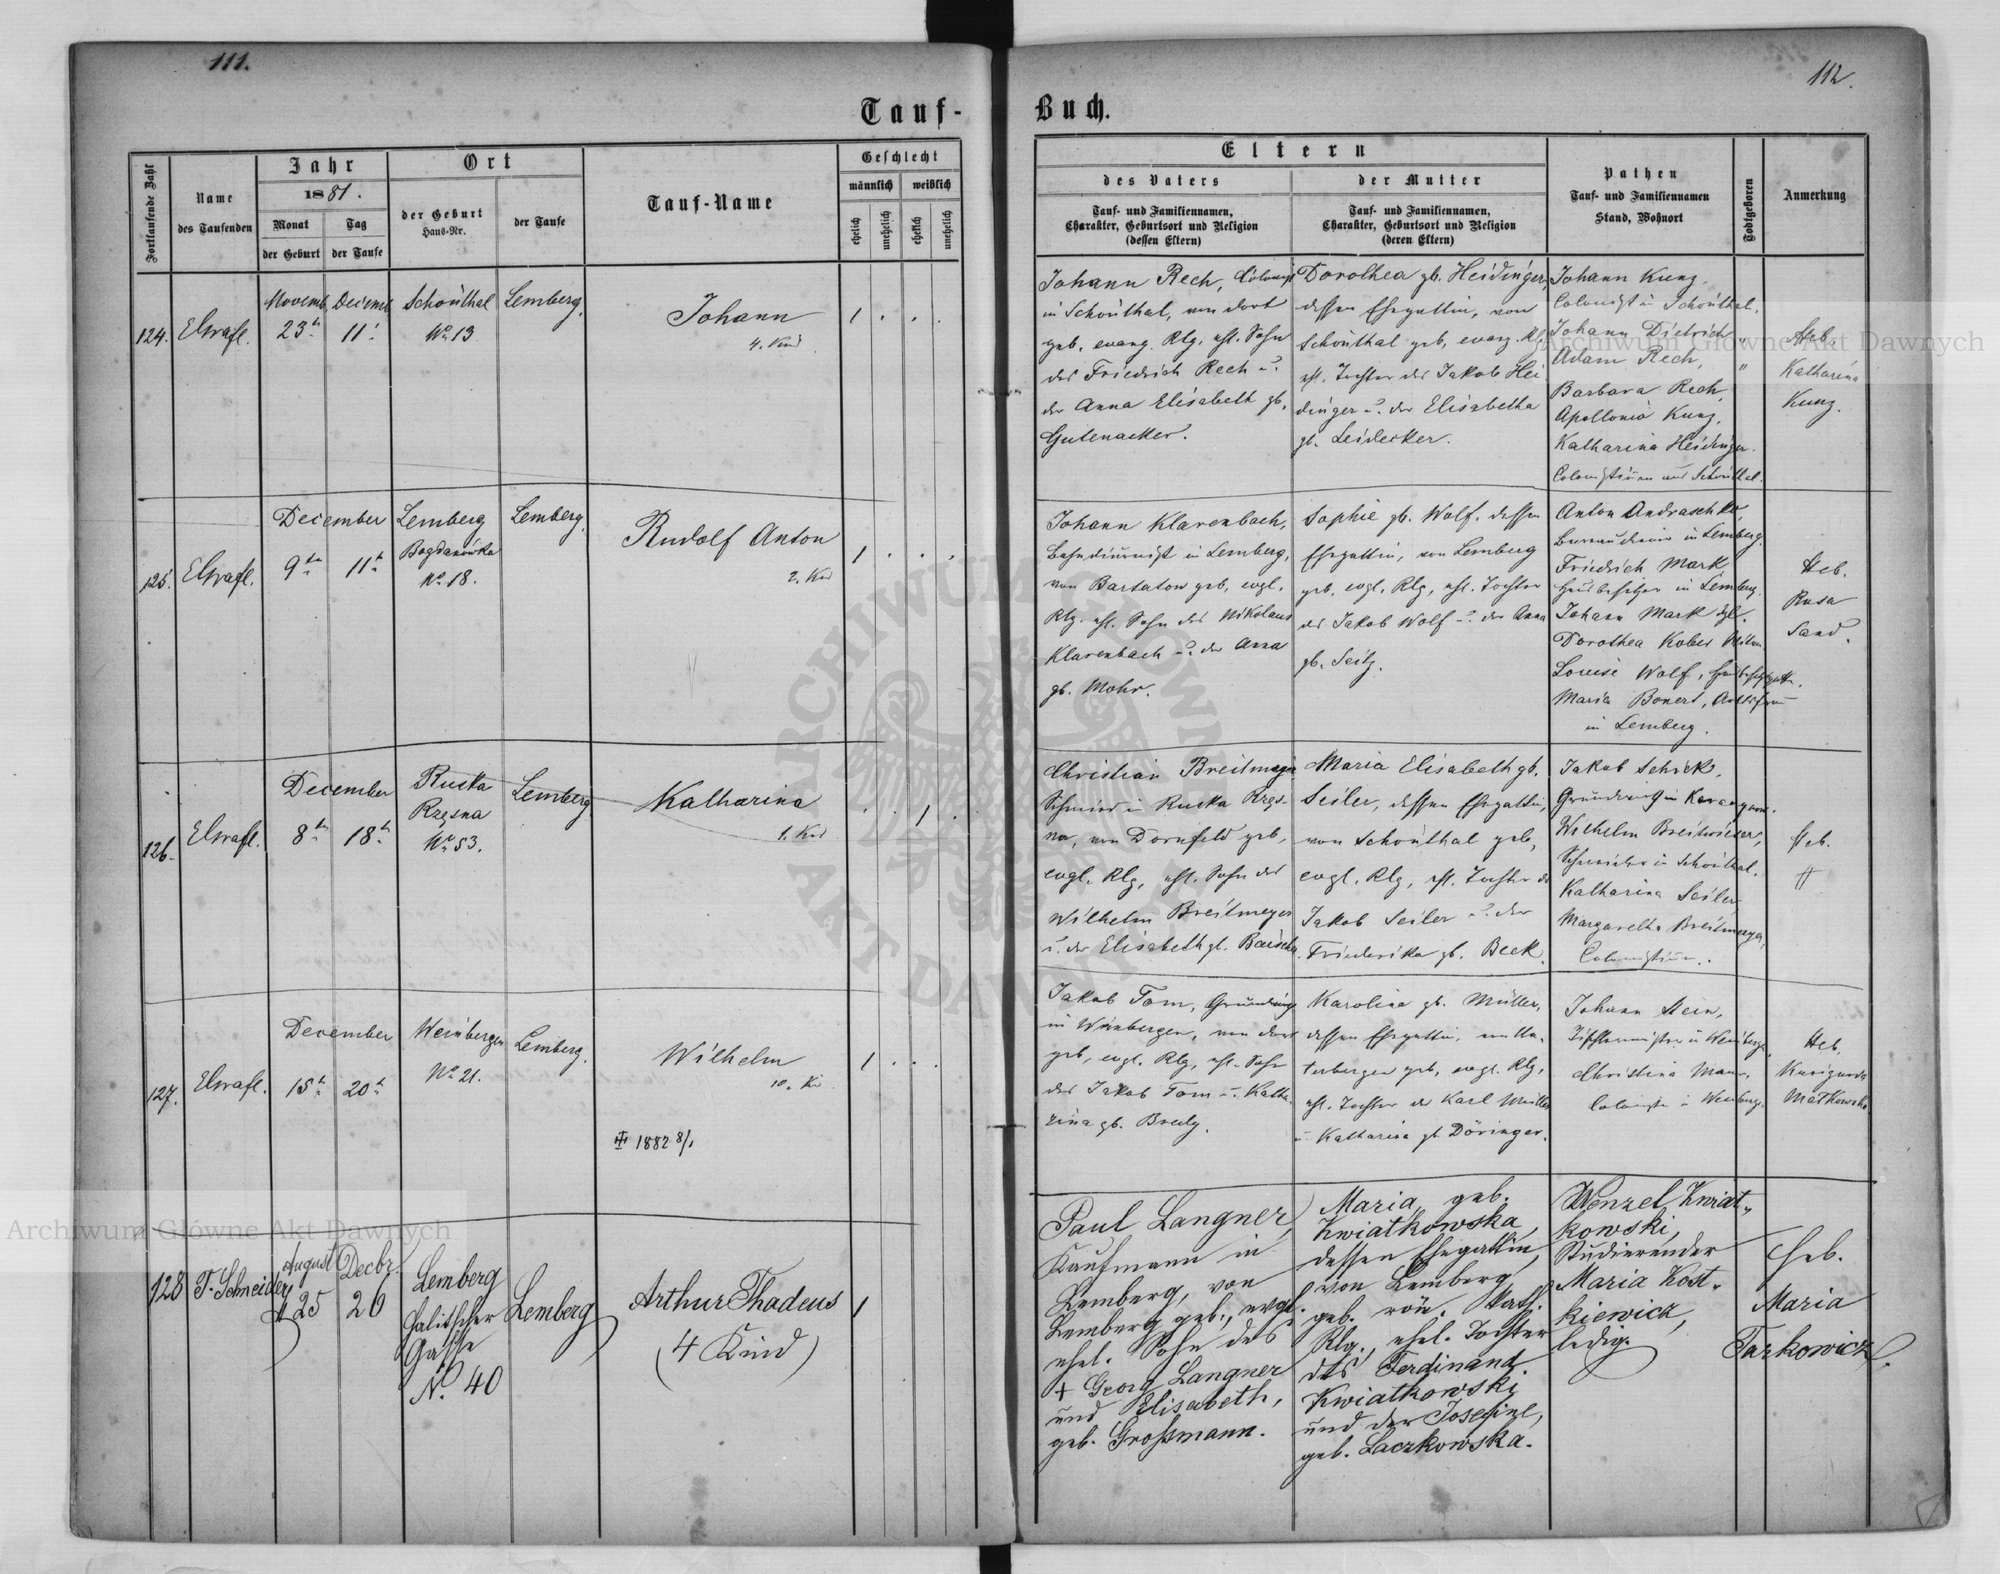 111.
112.
Tauf-
Buch.
Fortlaufende Zahl
Name
des Taufenden
Jahr
1881.
Monat
Tag
der Geburt
der Taufe
Ort
der Geburt
Haus-Nr.
der Taufe
Tauf-Name
Geschlecht
männlich
weiblich
ehelich
unehelich
ehelich
unehelich
Eltern
des Vaters
Tauf- und Familiennamen,
Charakter, Geburtsort und Religion
(dessen Eltern)
der Mutter
Tauf- und Familiennamen,
Charakter, Geburtsort und Religion
(deren Eltern)
Pathen
Tauf- und Familiennamen
Stand, Wohnort
Todtgeboren
Anmerkung
124.
Novemb.
23
Decemb.
11.
Schönthal
No 13
Lemberg.
Johann
4. Kind
1
Johann Rech, Colonist
in Schönthal, von dort
geb. evang. Rlg. ehl. Sohn
des Friedrich Rech u.
der Anna Elisabeth gb.
Gutenacker.
Dorothea gb. Heidinger,
dessen Ehegattin, von
Schönthal geb. evang. Rlg.
ehl. Tochter des Jakob Hei
dinger u. der Elisabetha
gb. Leidecker.
Johann Kunz,
Colonist in Schönthal.
Johann Dietrich "
Adam Rech, "
Barbara Rech,
Apollonia Kunz,
Katharina Heidinger
Colonistinen aus Schönthal.
Heb.
Katharina
Kunz.
125.
December
9
11
Lemberg
Bogdanówka
No 18.
Lemberg.
Rudolf Anton
2. Kind
1
Johann Klarenbach,
in Lemberg,
von Bartatow geb. evgl.
Rlg. ehl. Sohn des Nikolaus
Klarenbach u. der Anna
gb. Mohr.
Sophie gb. Wolf, dessen
Ehegattin, von Lemberg
geb. evgl. Rlg, ehl. Tochter
des Jakob Wolf u. der Anna
gb. Seitz.
Anton Andraschko,
in Lemberg.
Friedrich Mark
Hausbesitzer in Lemberg.
Johann Mark dgl.
Dorothea Kober
Louise Wolf,
Maria Bonert,
in Lemberg.
Heb.
Rosa
Sand.
126.
December
8
18
Ruska
Rzęsna
No 53.
Lemberg
Katharina
1. Kind
1
Christian Breitmayer
Schmied in Ruska Rzęs-
na, von Dornfeld geb,
evgl. Rlg, ehl. Sohn des
Wilhelm Breitmeyer
u. der Elisabeth gb.
Maria Elisabeth gb.
Seiler, dessen Ehegattin,
von Schönthal geb,
evgl. Rlg, ehl. Tochter des
Jakob Seiler u. der
Friederika gb. Beck.
Jakob Schick,
Wilhelm
in Schönthal.
Katharina Seiler
Margaretha Breitmeyer,
Colonistinen.
Heb.
127.
December
15
20
Weinbergen
No 21.
Lemberg.
Wilhelm
10. Kind
1882 8/1
1
Jakob Tom,
in Weinbergen, von dort
geb, evgl. Rlg, ehl. Sohn
des Jakob Tom u. Katha-
rina gb.
Karolina gb. Müller,
dessen Ehegattin, von Un-
terbergen geb, evgl. Rlg,
ehl. Tochter des Karl Müller
u. Katharina gb. Döringer.
Johann Stein,
Tischlermeister in Weinbergen.
Christina
in Weinbergen
Heb.
Matkowska
128
T. Schneider
August
25
Decbr.
26
Lemberg
Halitscher
Gasse
N. 40
Lemberg
Arthur Thadeus
(4 Kind)
1
Paul Langner,
Kaufmann in
Lemberg, von
Lemberg geb., evgl.
ehel. Sohn des
+ Georg Langner
und Elisabeth,
geb. Großmann.
Maria geb.
Kwiatkowska,
dessen Ehegattin,
von Lemberg
geb. röm. kath.
Rlg., ehel. Tochter
des Ferdinand
Kwiatkowski
und der Josefine,
geb. Laczkowska.
Wenzel Kwiat-
kowski,
Studierender
Maria Kost-
kiewicz,
ledig.
Heb.
Maria
Tarkowicz.
Archiwum Główne Akt Dawnych
Archiwum Główne Akt Dawnych
ARCHIWUM GŁÓWNE
AKT DAWNYCH